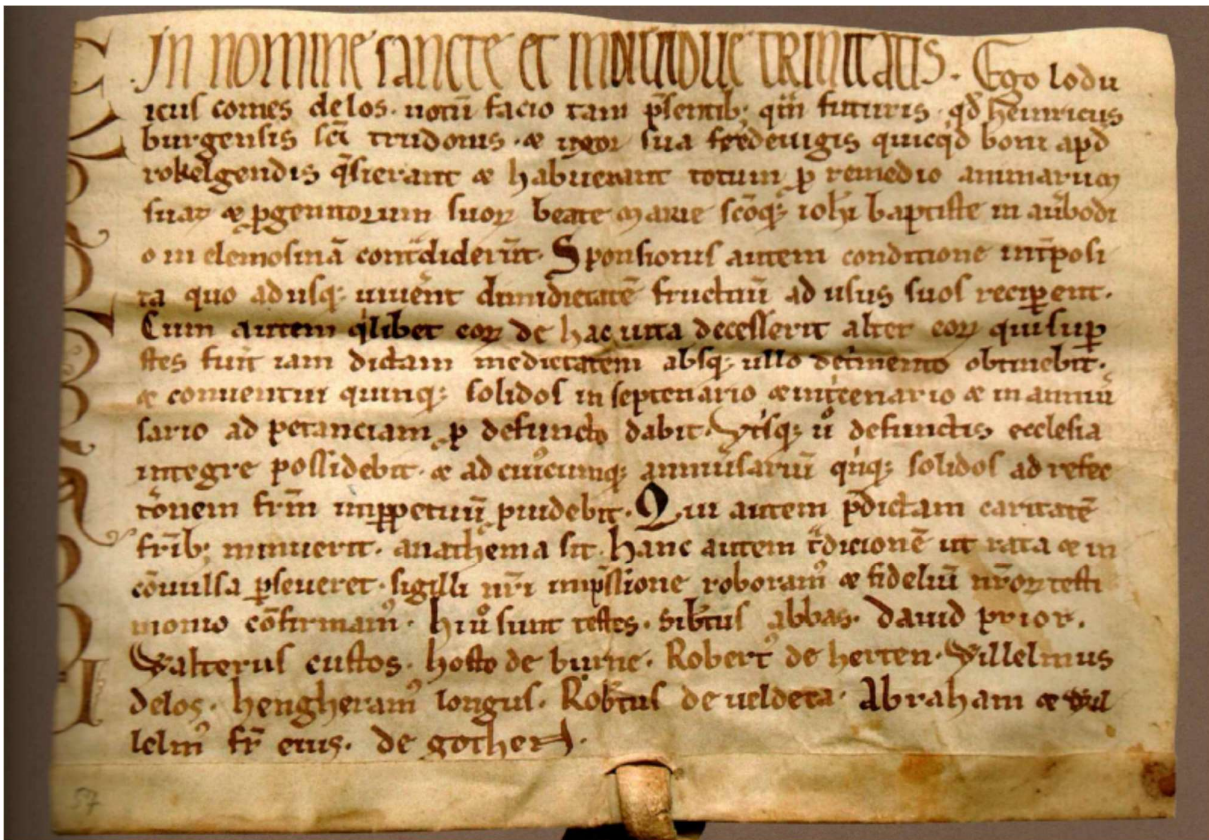 IN NOMINE SANCTE ET INDIVIDUE TRINITATIS. Ego lodu
icus comes de los. notū facio tam p̄sentib; qm̄ futuris. qd̄ heinricus
burgensis sc̄i trudonis. & uxor sua fredeuigis quicq̄d boni apd
rokelgendis q̄sierant & habuerant totum ꝑ remedio animarum
suaꝝ & ꝓgenitorum suoꝝ beate marie sc̄oq; ioh̄i baptiste in au̅bodi
o in elemosinā cont̄diderūt. Sponsionis autem conditione int̄posi
ta quo adusq; uiuer̄nt dimidietatē fructuū ad usus suos reciꝑent.
Cum autem q̄libet eoꝝ de hac uita decesserit alter eoꝝ qui suꝑ
stes fuīt iam dictam medietatem absq; ullo det̄mento obtinebit.
& conuentui quinq; solidos in septenario & in t̄cenario & in anniū
sario ad petanciam ꝑ defuncto dabit. Vt̄sq; u̅o defunctis ecclesia
integre possidebit. & ad cuiūcumq; anniu̅sariū q̄nq; solidos ad refec
t̄onem fr̄m inꝑpetuū ꝓuidebit. Qui autem p̄dictam caritatē
fr̄ib; minuerit. anathema sit. Hanc autem t̄dicionē ut rata & in
cōuulsa ꝑseueret. sigilli nr̄i imp̄ssione roboram᷒ & fideliū nr̄oꝝ testi
monio cōfirmam᷒. Hii u̅o sunt testes. Sib̄tus abbas. dauid prior.
Walterus custos. hosto de burne. Robert᷒ de herten. Willelmus
de los. hengheram᷒ longus. Rob̄tus de ueldeta. Abraham & wil
lelm᷒ fr̄ eius. de gothen.
57